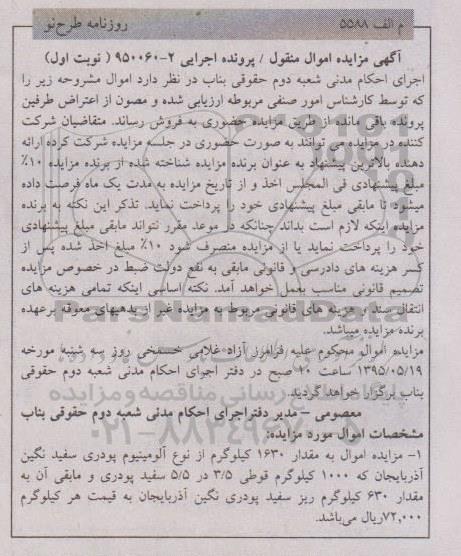 م الف ۵۵۸۸
روزنامه طرح‌نو
آگهی مزایده اموال منقول / پرونده اجرایی ۲-۹۵۰۰۶۰ ( نوبت اول)
اجرای احکام مدنی شعبه دوم حقوقی بناب در نظر دارد اموال مشروحه زیر را
که توسط کارشناس امور صنفی مربوطه ارزیابی شده و مصون از اعتراض طرفین
پرونده باقی مانده از طریق مزایده حضوری به فروش رساند. متقاضیان شرکت
کننده در مزایده می توانند به صورت حضوری در جلسه مزایده شرکت کرده ارائه
دهنده بالاترین پیشنهاد به عنوان برنده مزایده شناخته شده از برنده مزایده ۱۰٪
مبلغ پیشنهادی فی المجلس اخذ و از تاریخ مزایده به مدت یک ماه فرصت داده
میشود تا مابقی مبلغ پیشنهادی خود را پرداخت نماید. تذکر این نکته به برنده
مزایده اینکه لازم است بداند چنانکه در موعد مقرر نتواند مابقی مبلغ پیشنهادی
خود را پرداخت نماید یا از مزایده منصرف شود ۱۰٪ مبلغ اخذ شده پس از
کسر هزینه های دادرسی و قانونی مابقی به نفع دولت ضبط در خصوص مزایده
تصمیم قانونی مناسب بعمل خواهد آمد. نکته اساسی اینکه تمامی هزینه های
انتقال سند و هزینه های قانونی مربوط به مزایده غیر از بدهیهای معوقه برعهده
برنده مزایده میباشد.
مزایده اموال محکوم علیه فرامرز آزاد غلامی خسمخی روز سه شنبه مورخه
۱۳۹۵/۰۵/۱۹ ساعت ۱۰ صبح در دفتر اجرای احکام مدنی شعبه دوم حقوقی
بناب برگزار خواهد گردید.
معصومی – مدیر دفتراجرای احکام مدنی شعبه دوم حقوقی بناب
مشخصات اموال مورد مزایده:
۱- مزایده اموال به مقدار ۱۶۳۰ کیلوگرم از نوع آلومینیوم پودری سفید نگین
آذربایجان که ۱۰۰۰ کیلوگرم قوطی ۳/۵ در ۵/۵ سفید پودری و مابقی آن به
مقدار ۶۳۰ کیلوگرم ریز سفید پودری نگین آذربایجان به قیمت هر کیلوگرم
۷۲,۰۰۰ریال می‌باشد.
ParsNamadData
پایگاه اطلاع رسانی مناقصه و مزایده
۰۲۱-۸۸۳۴۹۶۷۰-۵